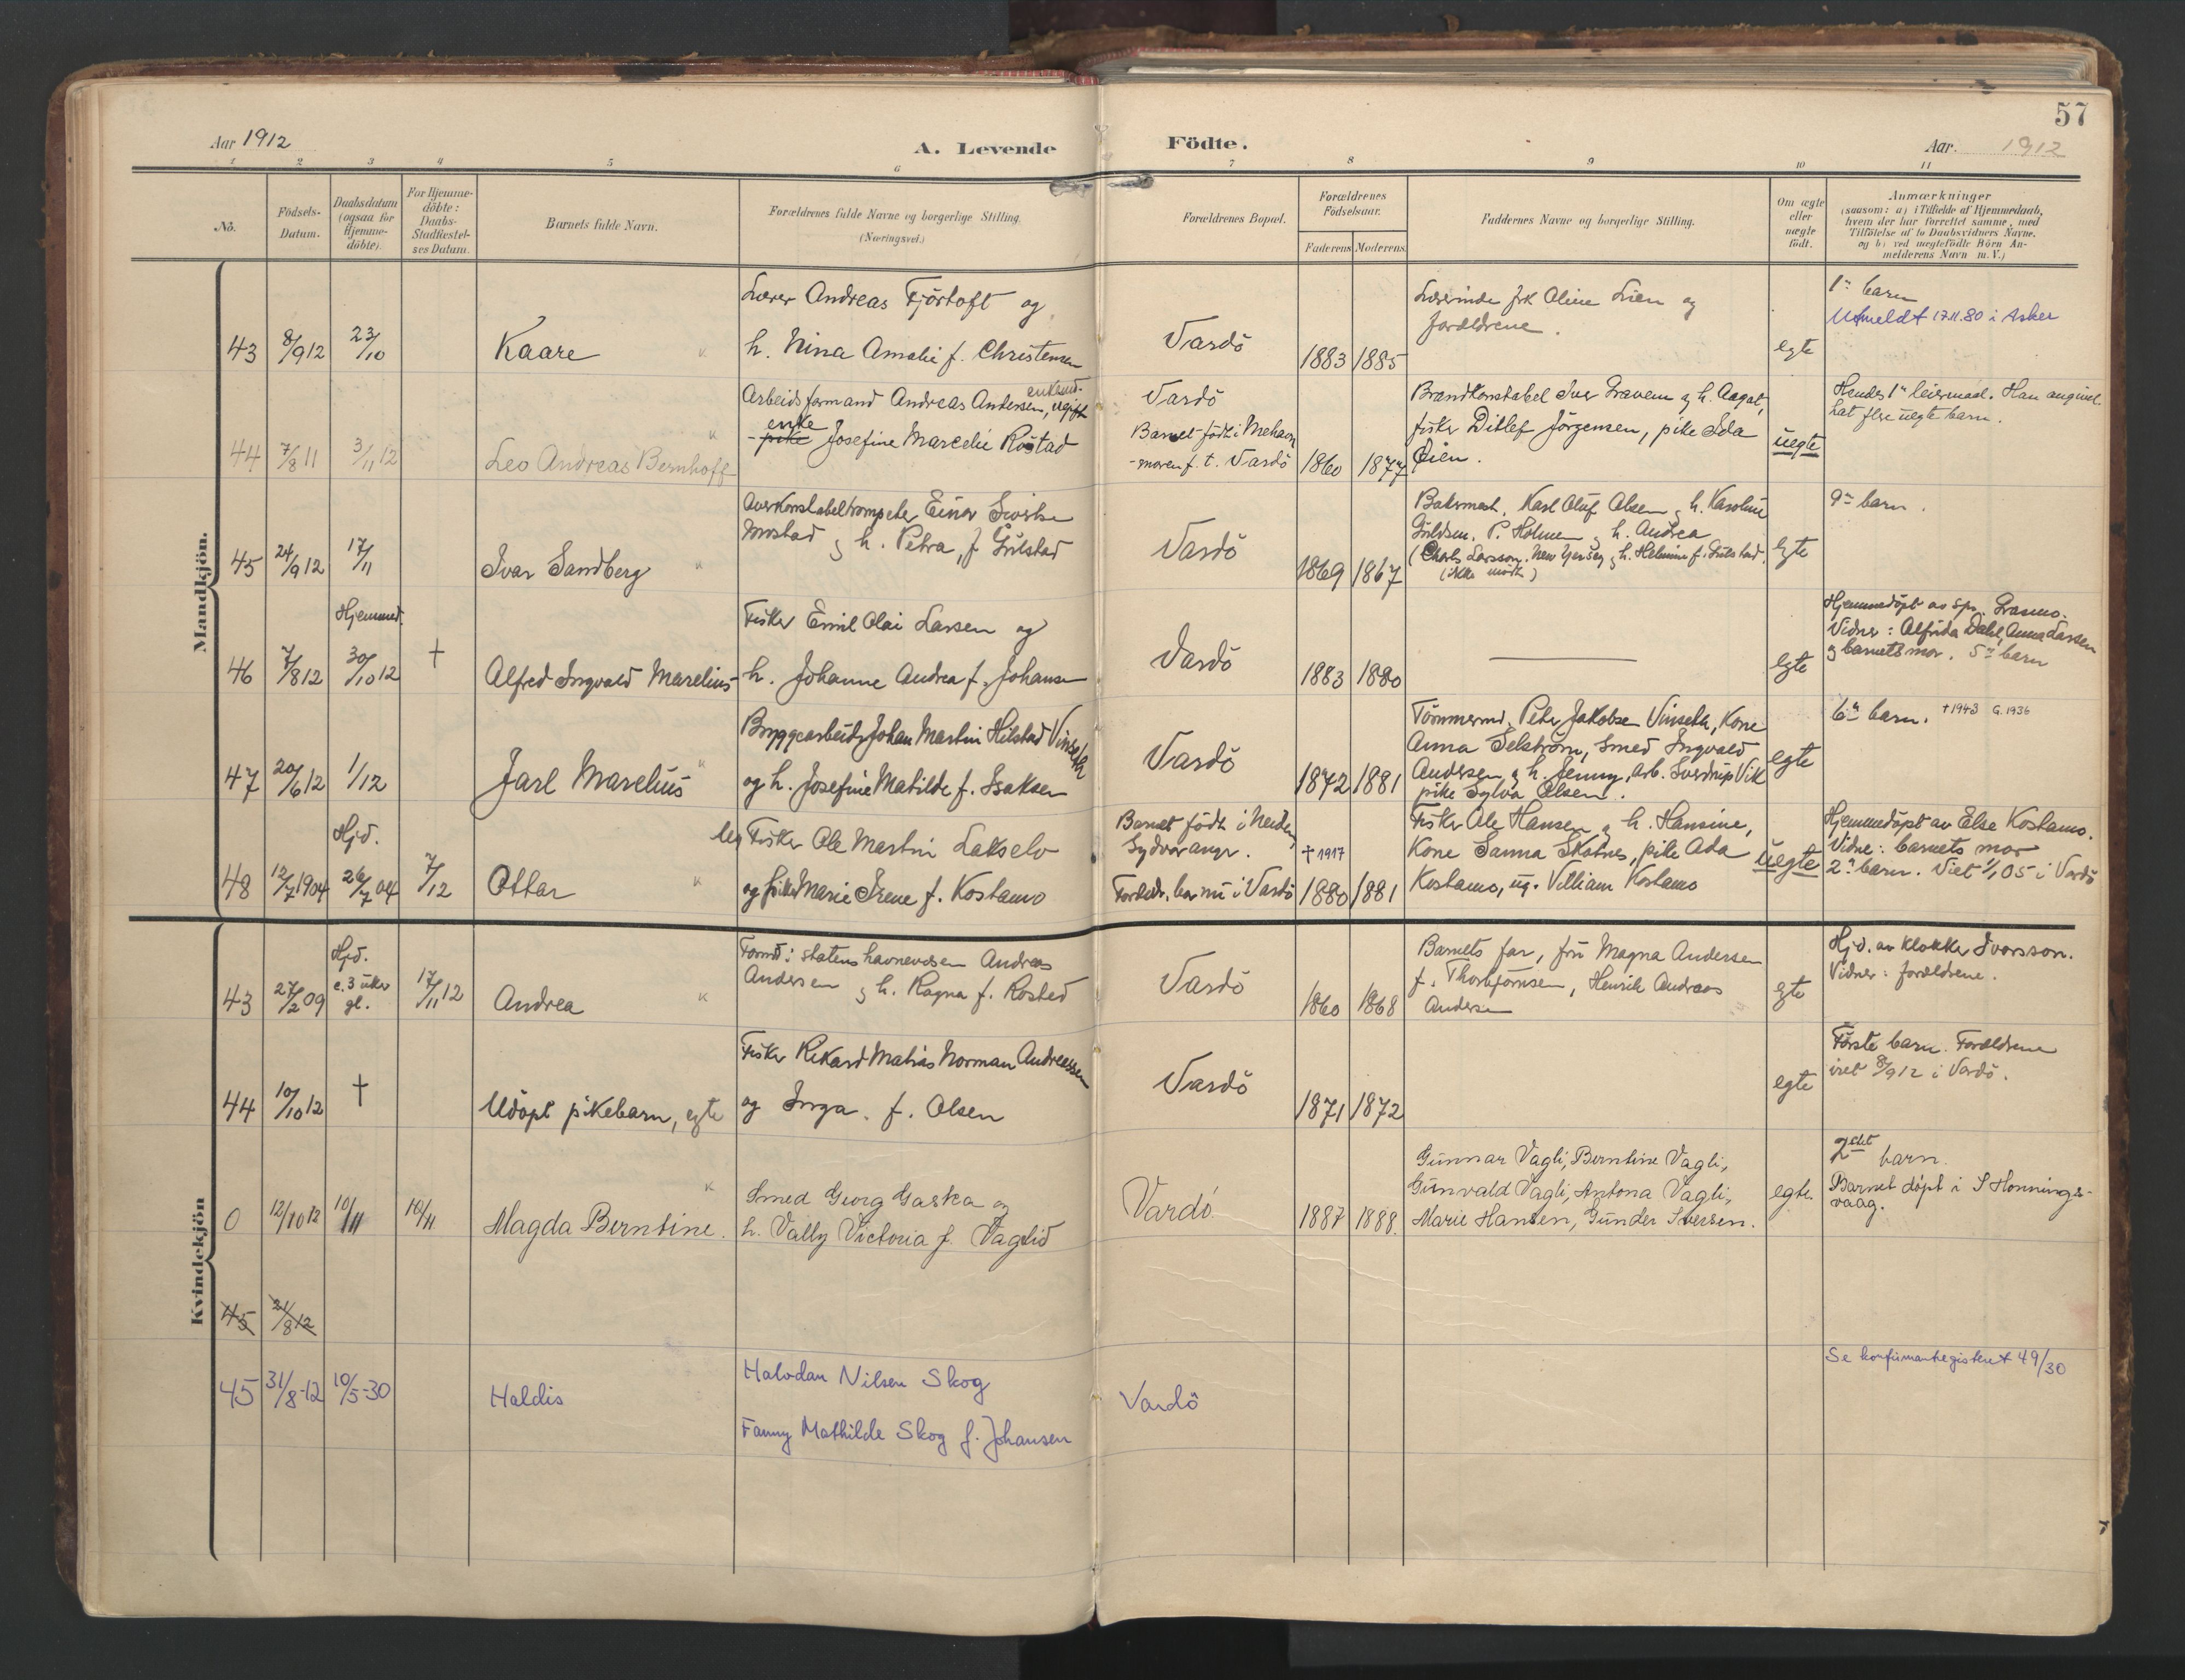 57
Aar 1912
A. Levende
Födte.
Aar. 1912
1 2 3 4 5 6 7 8 9 10 11
No.
Födsels-
Datum.
Daabsdatum
(ogsaa for
Hjemme-
döbte).
For Hjemme-
döbte:
Daabs-
Stadfæstel-
ses Datum.
Barnets fulde Navn.
Forældrenes fulde Navne og borgerlige Stilling.
(Næringsvei.)
Forældrenes Bopæl.
Forældrenes
Födselsaar.
Faderens Moderens
Faddernes Navne og borgerlige Stilling.
Om ægte
eller
uægte
födt.
Anmærkninger
(saasom: a) i Tilfælde af Hjemmedaab,
hvem der har forrettet samme, med
Tilföielse af to Daabsvidners Navne,
og b) ved uægtefödte Börn An-
melderens Navn m. V.)
Mandkjön.
43 8/9 12 23/10
Kaare
Lærer Andreas Fjörtoft og
h. Nina Amalie f. Christensen
Vardö
1883 1885
Lærerinde frk Oline Lien og
forældrene.
egte
1ste barn
Utmeldt 17.11.80 i Asker
44 7/8 11 3/11 12
Leo Andreas Bernhoff
Arbeidsformand Andreas Andersen, enkemd. ugift
enke
- pike Josefine Marcelie Rostad
Vardö
Barnet födt i Mehavn
- moren f. t. Vardö
1860 1877
Brandkonstabel Iver Gravem og h. Aagot,
fisker Ditlef Jörgensen, pike Ida
Öien.
uegte
Hendes 1ste leiermaal. Han angivel.
hat flere uegte barn.
45 24/9 12 17/11
Ivar Sandberg
Overkonstabeltrompeter Einar Sivertsen
Mostad og h. Petra, f. Gulstad
Vardö
1869 1867
Bakermest. Karl Oluf Olsen og h. Karoline
Guldsm. P. Holmen og h. Andrea
(Charls Larsson, New Yersey og h. Helmine f. Gulstad.
(ikke mödt)
egte
9de barn.
46 7/8 12
Hjemmed.
30/10 12
†
Alfred Ingvald Marelius
Fisker Emil Olai Larsen og
h. Johanne Andrea f. Johansen
Vardö
1883 1880
egte
Hjemmedöpt av Spr. Grasmo.
Vidner: Alfrida Dahl, Anna Larsen
og barnets mor. 5te barn
47 20/6 12 1/12
Jarl Marelius
Bryggearbeider Johan Martin Hilstad Vinseth
og h. Josefine Matilde f. Isaksen
Vardö
1872 1881
Tömmermd. Peter Jakobsen Vinseth, Kone
Anna Selström, Smed Ingvald
Andersen og h. Jenny, arb. Sverdrup Vik
pike Sylva Olsen.
egte
6te barn. † 1943 G. 1936
48 12/7 1904
Hjd.
26/7 04
7/12
Ottar
Fisker Ole Martin Lakselv
og pike Marie Irene f. Kostamo
Barnet födt i Neiden,
Sydvaranger.
Forældr. bor nu i Vardö
† 1917
1880 1881
Fisker Ole Hansen og h. Hansine,
Kone Sanna Skotnes, pike Ada
Kostamo, ug. Villiam Kostamo
uegte
Hjemmedöpt av Else Kostamo.
Vidne: barnets mor
2det barn. Viet 1/1 05 i Vardö
Kvindekjön
43 27/2 09
Hjd.
c. 3 uker
gl.
17/11 12
Andrea
Formd. i statens havnevæsen Andreas
Andersen og h. Ragna f. Rosted
Vardö
1860 1868
Barnets far, fru Magna Andersen
f. Thorbjörnsen, Henrik Andreas
Andersen
egte
Hjd. av klokker Ivarsson.
Vidner: forældrene.
44 10/10 12 †
Udöpt pikebarn, egte
Fisker Rikard Matias Norman Andreassen
og Inga f. Olsen
Vardö
1871 1872
egte
Förste barn. Forældrene
viet 8/9 12 i Vardö.
0 12/10 12 10/11 10/11
Magda Berntine.
Smed Georg Gaska og
h. Vally Victoria f. Vaglid
Vardö
1887 1888.
Gunnar Vagli, Berntine Vagli,
Gunvald Vagli, Antona Vagli,
Marie Hansen, Gunder Iversen.
egte.
2det barn.
Barnet döpt i S Honnings-
vaag.
45 21/8 12
45 31/8-12 10/5-30
Haldis
Halvdan Nilsen Skog
Fanny Mathilde Skog f. Johansen
Vardö
Se konfirmantregisteret 49/30